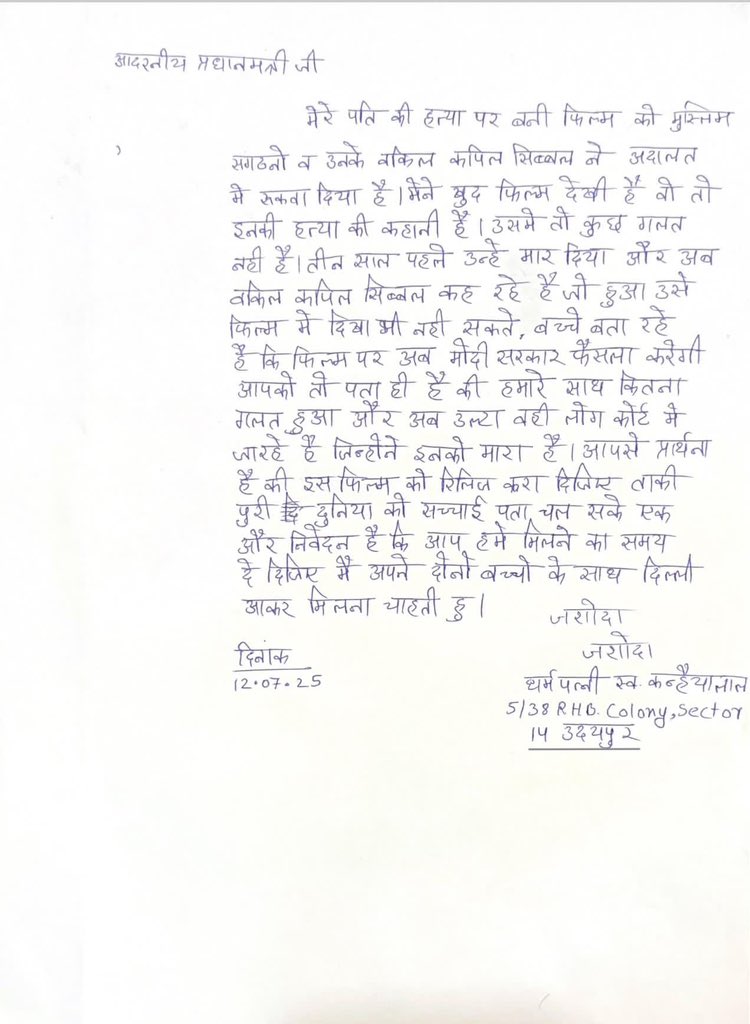 आदरनीय प्रधानमन्त्री जी
मेरे पति की हत्या पर बनी फिल्म को मुस्लिम
संगठनो व उनके वकिल कपिल सिब्बल ने अदालत
मे रुकवा दिया है। मैने खुद फिल्म देखी है वो तो
इनकी हत्या की कहानी है। उसमे तो कुछ गलत
नही है। तीन साल पहले उन्हे मार दिया और अब
वकिल कपिल सिब्बल कह रहे है जो हुआ उसे
फिल्म में दिखा भी नही सकते, बच्चे बता रहे
है कि फिल्म पर अब मोदी सरकार फैसला करेगी
आपको तो पता ही है की हमारे साथ कितना
गलत हुआ और अब उल्टा वही लोग कोर्ट मे
जारहे है जिन्होने इनको मारा है। आपसे प्रार्थना
है की इस फिल्म को रिलिज करा दिजिए ताकी
पुरी दुनिया को सच्चाई पता चल सके एक
और निवेदन है कि आप हमे मिलने का समय
दे दिजिए मै अपने दोनो बच्चो के साथ दिल्ली
आकर मिलना चाहती हु।
जशोदा
जशोदा
दिनांक
12.07.25
धर्मपत्नी स्व. कन्हैयालाल
5/38 RHB. Colony, Sector
14 उदयपुर